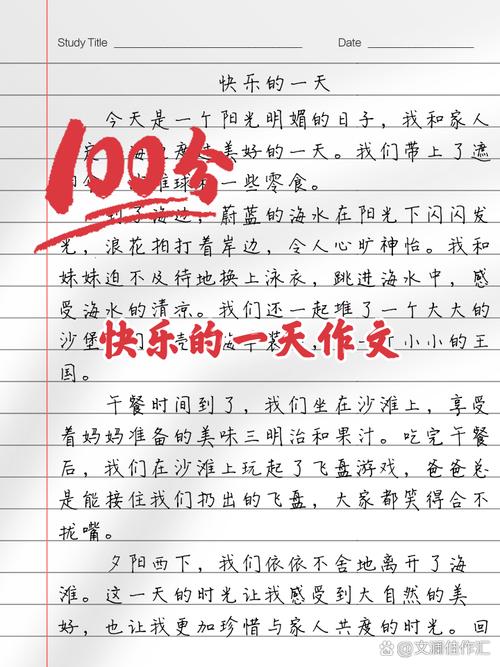 Study Title
Date
快乐的一天
今天是一个阳光明媚的日子，我和家人
海 度 美好的一天。我们带上了遮
球 一些零食。
100分
到了海边，蔚蓝的海水在阳光下闪闪发
光，浪花拍打着岸边，令人心旷神怡。我和
妹妹迫不及待地换上泳衣，跳进海水中，感
受海水的清凉。我们还一起堆了一个大大的
沙堡 小小的王
快乐的一天作文
国。
午餐时间到了，我们坐在沙滩上，享受
着妈妈准备的美味三明治和果汁。吃完午餐
后，我们在沙滩上玩起了飞盘游戏，爸爸总
是能接住我们扔出的飞盘，大家都笑得合不
拢嘴。
夕阳西下，我们依依不舍地离开了海
滩。这一天的时光让我感受到大自然的美
好，也让我更加珍惜与家人共度的时光。回
@文澜佳作汇